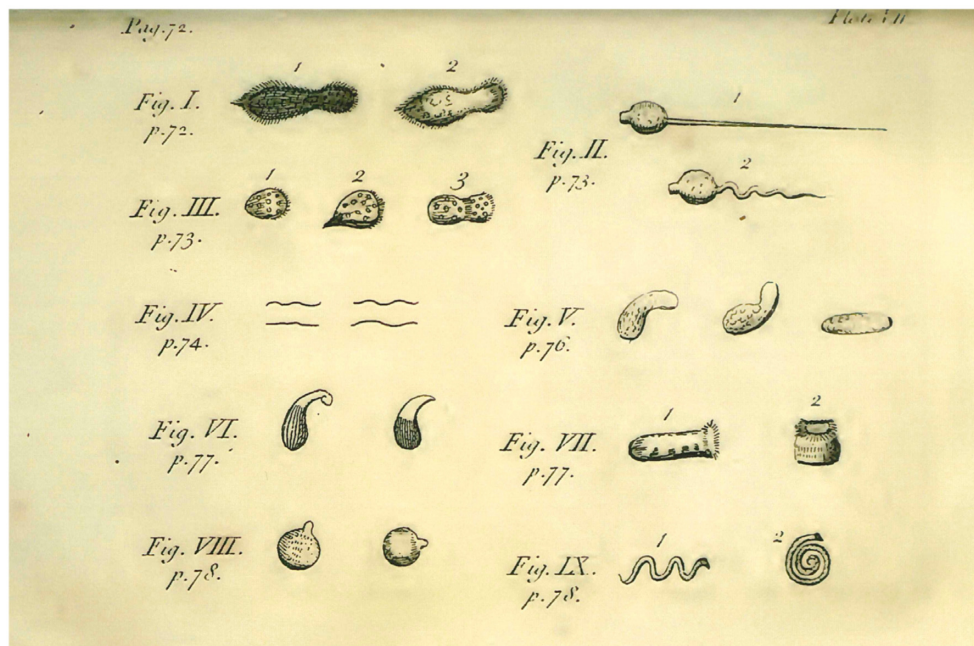 Pag. 72.
Plate VII
1 2
Fig. I.
p. 72.
1
Fig. II.
p. 73.
2
1 2 3
Fig. III.
p. 73.
Fig. IV.
p. 74.
Fig. V.
p. 76.
Fig. VI.
p. 77.
1 2
Fig. VII.
p. 77.
Fig. VIII.
p. 78.
1 2
Fig. IX.
p. 78.